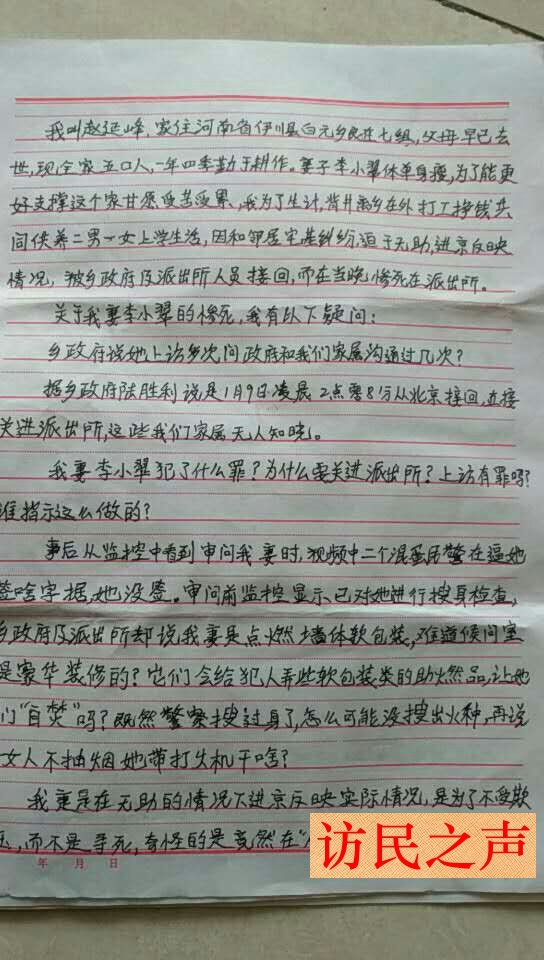 我叫赵延峰,家住河南省伊川县白元乡 七组,父母早已去
世,现全家五口人,一年四季勤于耕作。妻子李小翠体单身瘦,为了能更
好支撑这个家甘愿受苦受累,我为了生计,背井离乡在外打工挣钱,共
同供养二男一女上学生活,因和邻居宅基纠纷,迫于无助,进京反映
情况,被乡政府及派出所人员接回,而在当晚惨死在派出所。
关于我妻李小翠的惨死,我有以下疑问:
乡政府说她上访多次,问政府和我们家属沟通过几次?
据乡政府陆胜利说是1月9日凌晨2点零8分从北京接回,直接
关进派出所,这些我们家属无人知晓。
我妻李小翠犯了什么罪?为什么要关进派出所?上访有罪吗?
谁指示这么做的?
事后从监控中看到审问我妻时,视频中二个混蛋民警在逼她
签啥字据,她没签。审问前监控显示,已对她进行搜身检查,
乡政府及派出所却说我妻是点燃墙体软包装,难道候问室
是豪华装修的?它们会给犯人弄些软包装类的助燃品,让她
们“自焚”吗?既然警察搜过身了,怎么可能没搜出火种,再说
女人不抽烟她带打火机干啥?
我妻是在无助的情况下进京反映实际情况,是为了不受欺
压,而不是寻死,奇怪的是竟然在“
年 月 日
访民之声